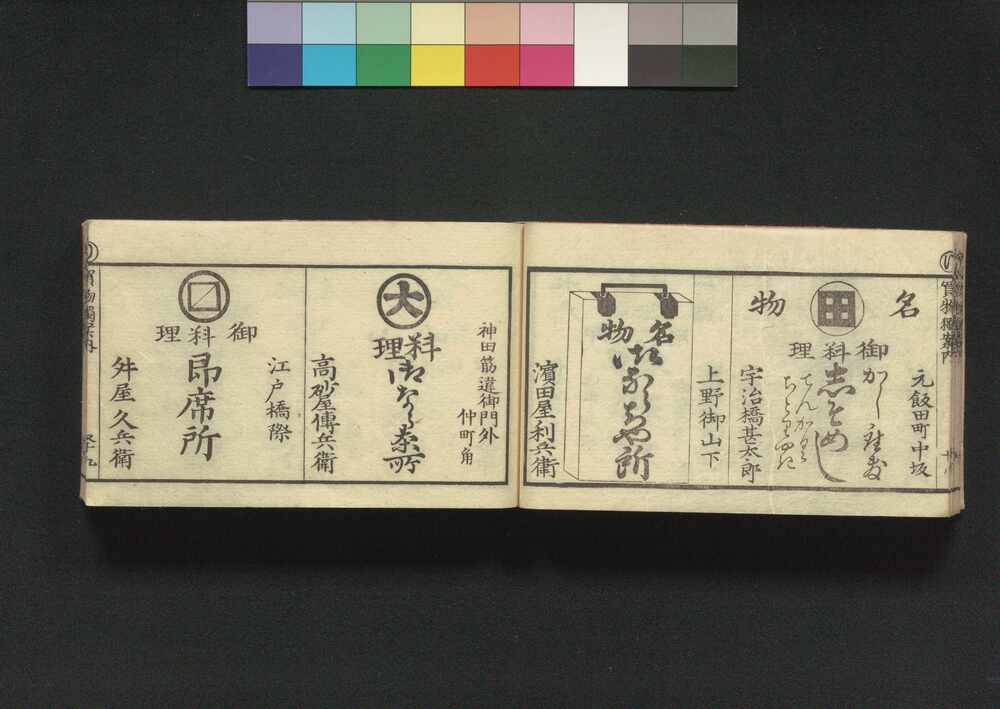 買物獨案内
元飯田町中坂
名物
御料理
志そめし
宇治橋甚太郎
上野御山下
名物
御奈良茶所
濱田屋利兵衛
神田筋違御門外
仲町角
大
料理
御奈ら茶所
高砂屋傳兵衛
江戸橋際
御料理
即席所
舛屋久兵衛
買物獨案内